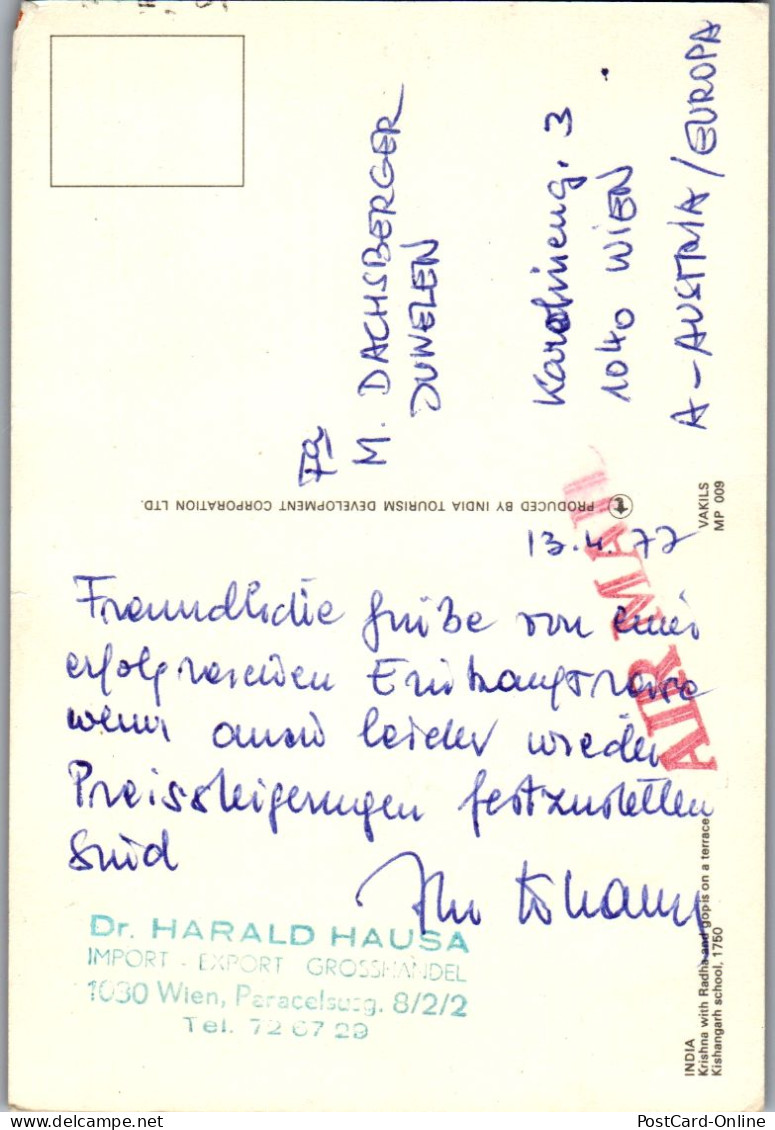 Fa
M. DACHSBERGER
JUWELEN
Karolineng. 3
1040 WIEN
A-AUSTRIA/EUROPA
PRODUCED BY INDIA TOURISM DEVELOPMENT CORPORATION LTD.
VAKILS
MP 009
AIR MAIL
13.4.77
Freundliche Grüße von einer
erfolgreichen Einkaufsreise
wenn auch leider wieder
Preissteigerungen festzustellen
sind
Ihr
Dr. HARALD HAUSA
IMPORT - EXPORT GROSSHANDEL
1030 Wien, Paracelsusg. 8/2/2
Tel. 72 67 29
INDIA
Krishna with Radha and gopis on a terrace
Kishangarh school, 1750
PostCard-Online